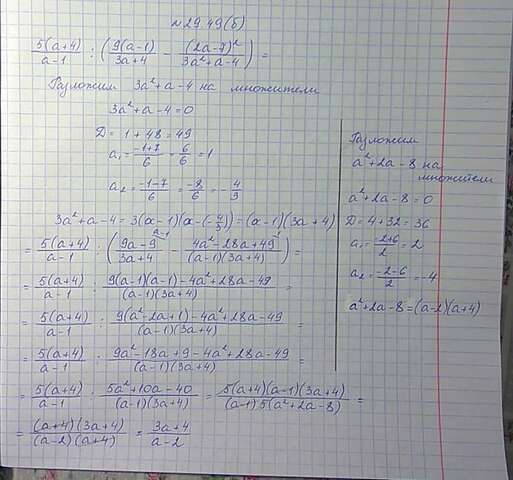 № 29.49 (б)
5(a+4)/(a-1) : (9(a-1)/(3a+4) - (2a-7)²/(3a²+a-4)) =
Разложим 3a²+a-4 на множители
3a²+a-4=0
D = 1+48 = 49
a₁ = (-1+7)/6 = 6/6 = 1
a₂ = (-1-7)/6 = -8/6 = -4/3
3a²+a-4 = 3(a-1)(a-(-4/3)) = (a-1)(3a+4)
= 5(a+4)/(a-1) : ((9a-9)/(3a+4) ^(a-1) - (4a²-28a+49)/((a-1)(3a+4)) ^1) =
= 5(a+4)/(a-1) : (9(a-1)(a-1)-4a²+28a-49)/((a-1)(3a+4)) =
= 5(a+4)/(a-1) : (9(a²-2a+1)-4a²+28a-49)/((a-1)(3a+4)) =
= 5(a+4)/(a-1) : (9a²-18a+9-4a²+28a-49)/((a-1)(3a+4)) =
= 5(a+4)/(a-1) : (5a²+10a-40)/((a-1)(3a+4)) = 5(a+4)(a-1)(3a+4)/((a-1)5(a²+2a-8)) =
= (a+4)(3a+4)/((a-2)(a+4)) = (3a+4)/(a-2)
Разложим
a²+2a-8 на
множители
a²+2a-8=0
D=4+32=36
a₁ = (-2+6)/2 = 2
a₂ = (-2-6)/2 = -4
a²+2a-8=(a-2)(a+4)